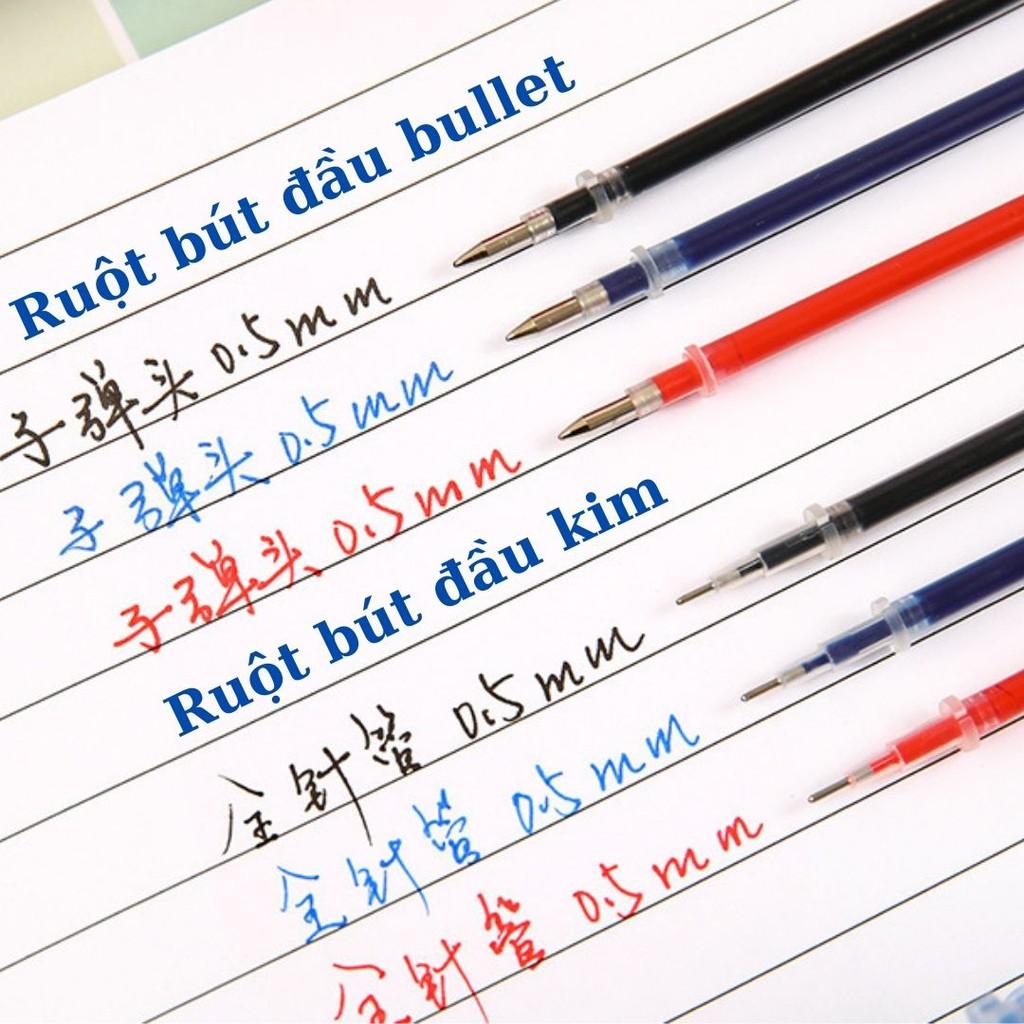 Ruột bút đầu bullet
子弹头 0.5mm
子弹头 0.5mm
子弹头 0.5mm
Ruột bút đầu kim
全针管 0.5mm
全针管 0.5mm
全针管 0.5mm